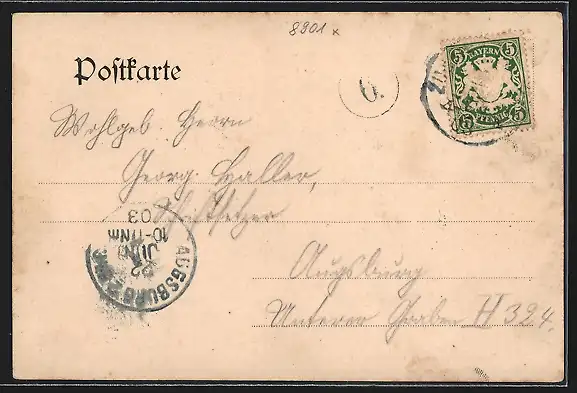 8901 x
Postkarte
6.
5 BAYERN 5
5 PFENNIG 5
Wohlgeb. Herrn
Georg Haller,
Schriftsetzer
Augsburg
Unterer Graben H 324.
AUGSBURG
22
JUN
10-11 NM
03